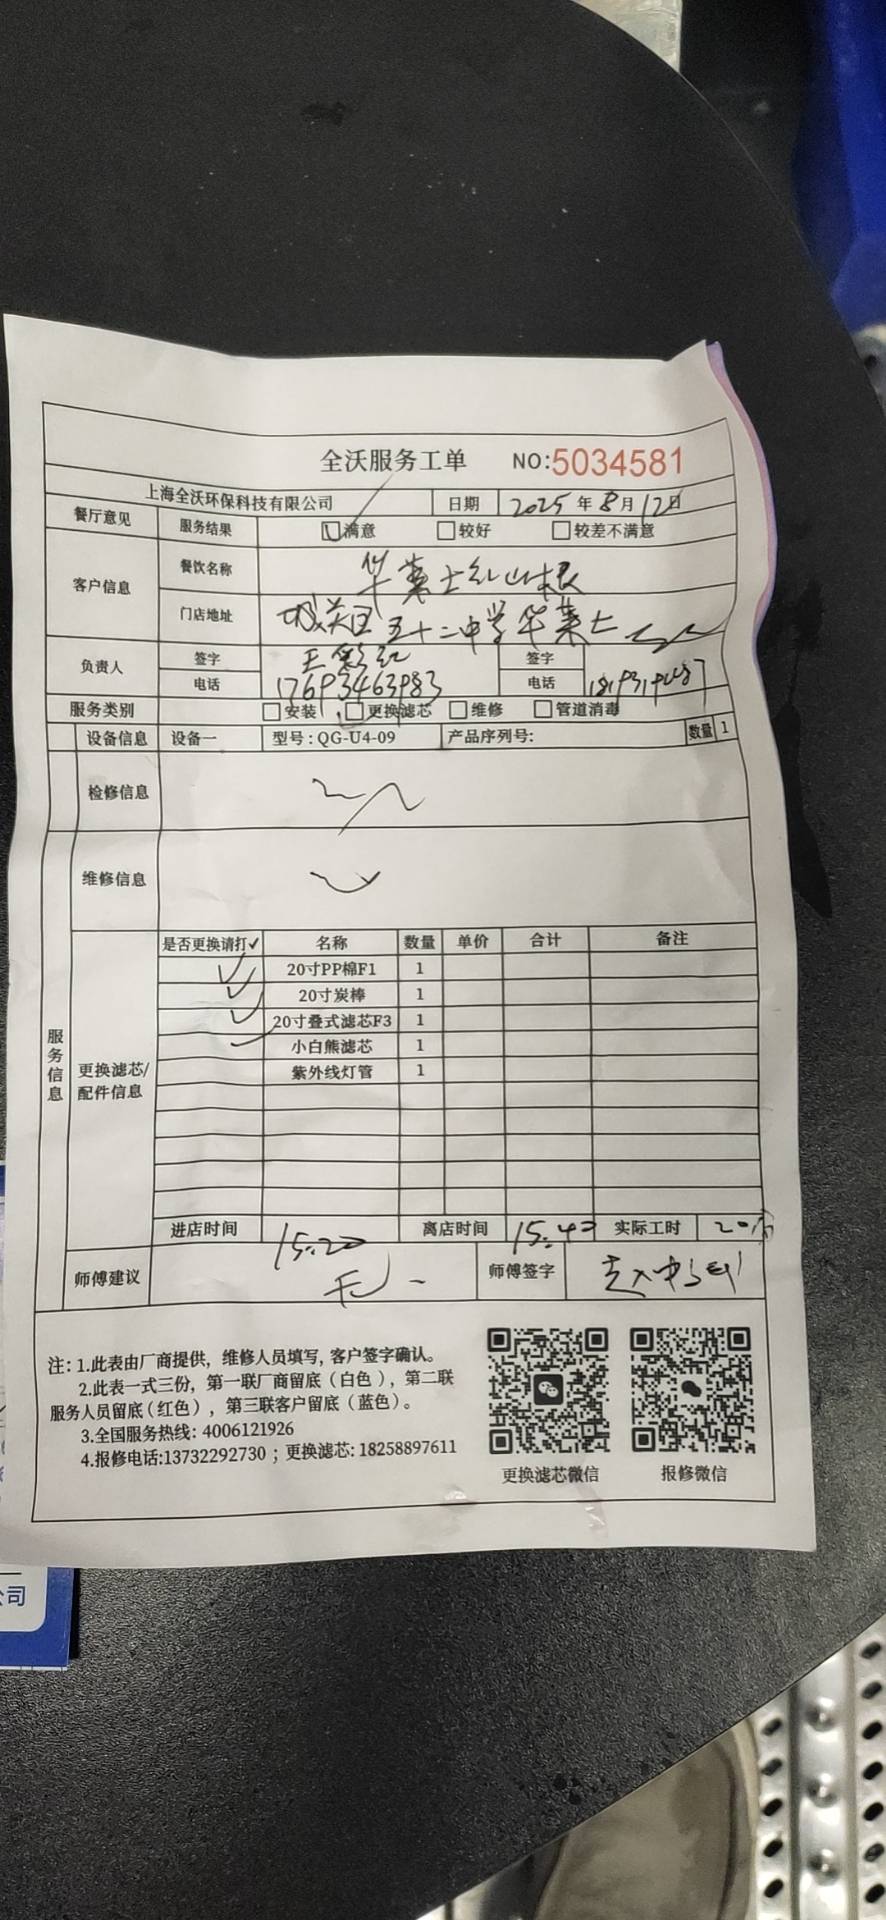 全沃服务工单 NO:5034581
上海全沃环保科技有限公司 日期 2025年8月12日
餐厅意见 服务结果 满意 较好 较差不满意
客户信息 餐饮名称 华莱士红山根
门店地址 城关区五十二中学华莱士
负责人 签字 王彩红 签字
电话 17693463983 电话
服务类别 安装 更换滤芯 维修 管道消毒
设备信息 设备一 型号:QG-U4-09 产品序列号: 数量 1
检修信息
维修信息
服务信息
更换滤芯/配件信息
是否更换请打✓ 名称 数量 单价 合计 备注
✓ 20寸PP棉F1 1
✓ 20寸炭棒 1
✓ 20寸叠式滤芯F3 1
✓ 小白熊滤芯 1
紫外线灯管 1
进店时间 15:20 离店时间 15:40 实际工时
师傅建议 无 师傅签字
注:1.此表由厂商提供,维修人员填写,客户签字确认。
2.此表一式三份,第一联厂商留底(白色),第二联
服务人员留底(红色),第三联客户留底(蓝色)。
3.全国服务热线:4006121926
4.报修电话:13732292730;更换滤芯:18258897611
更换滤芯微信 报修微信
公司